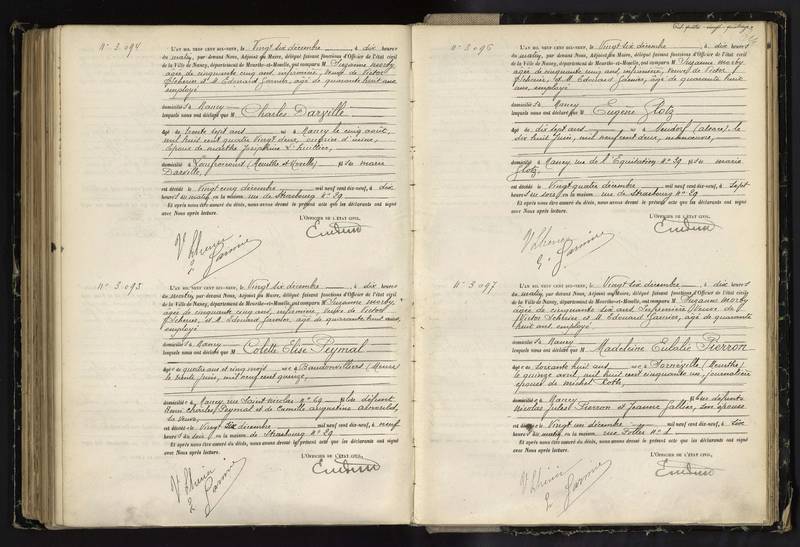 N° 3.094
L'AN MIL NEUF CENT DIX-NEUF, le Vingt six décembre, à dix heures
du matin, par devant Nous, Adjoint au Maire, délégué faisant fonctions d'Officier de l'état civil
de la Ville de Nancy, département de Meurthe-et-Moselle, ont comparu M Suzanne
âgée de cinquante cinq ans, infirmière, veuve de Victor
et M. Edouard Garnier, âgé de quarante huit ans
employé
domiciliés à Nancy
lesquels nous ont déclaré que M Charles Darville
âgé de trente sept ans né à Nancy le cinq août,
mil huit cent quatre vingt deux,
époux de Marthe Joséphine
domicilié à (Meurthe et Moselle) fils de
Darville,
est décédé le Vingt cinq décembre mil neuf cent dix-neuf, à dix
heures du matin, en la maison rue de Strasbourg N° 29
Et après nous être assuré du décès, nous avons dressé le présent acte que les déclarants ont signé
avec Nous après lecture.
L'OFFICIER DE L'ÉTAT CIVIL,
N° 3.095
L'AN MIL NEUF CENT DIX-NEUF, le Vingt six décembre, à dix heures
du matin, par devant Nous, Adjoint au Maire, délégué faisant fonctions d'Officier de l'état civil
de la Ville de Nancy, département de Meurthe-et-Moselle, ont comparu M Suzanne
âgée de cinquante cinq ans, infirmière, veuve de Victor
et M. Edouard Garnier, âgé de quarante huit ans,
employé
domiciliés à Nancy
lesquels nous ont déclaré que M Colette Elise Peymal
âgée de quatre ans et cinq mois née à Baudonvilliers (Meuse
le trente juin, mil neuf cent quinze,
domiciliée à Nancy, rue Saint Nicolas N° 69 fille de défunt
Charles Peymal et de Camille Augustine
sa veuve
est décédée le Vingt six décembre mil neuf cent dix-neuf, à neuf
heures du soir, en la maison de Strasbourg N° 29
Et après nous être assuré du décès, nous avons dressé le présent acte que les déclarants ont signé
avec Nous après lecture.
L'OFFICIER DE L'ÉTAT CIVIL,
N° 3.096
L'AN MIL NEUF CENT DIX-NEUF, le Vingt six décembre, à dix heures
du matin, par devant Nous, Adjoint au Maire, délégué faisant fonctions d'Officier de l'état civil
de la Ville de Nancy, département de Meurthe-et-Moselle, ont comparu M Suzanne
âgée de cinquante cinq ans, infirmière, veuve de Victor
et M. Edouard Garnier, âgé de quarante huit
ans, employé
domiciliés à Nancy
lesquels nous ont déclaré que M Eugène Glotz
âgé de dix sept ans né à Neudorf (Alsace) le
dix huit juin, mil neuf cent deux, manoeuvre,
domicilié à Nancy rue de l'Equitation N° 39 fils de Marie
Glotz,
est décédé le Vingt quatre décembre mil neuf cent dix-neuf, à sept
heures du soir, en la maison rue de Strasbourg N° 29
Et après nous être assuré du décès, nous avons dressé le présent acte que les déclarants ont signé
avec Nous après lecture.
L'OFFICIER DE L'ÉTAT CIVIL,
N° 3.097
L'AN MIL NEUF CENT DIX-NEUF, le Vingt six décembre, à dix heures
du matin, par devant Nous, Adjoint au Maire, délégué faisant fonctions d'Officier de l'état civil
de la Ville de Nancy, département de Meurthe-et-Moselle, ont comparu M Suzanne
âgée de cinquante six ans infirmière veuve de
Victor et M. Edouard Garnier, âgé de quarante
huit ans, employé
domiciliés à Nancy
lesquels nous ont déclaré que M Madeleine Eulalie Pierron
âgée de soixante huit ans née à (Meurthe)
le quinze avril, mil huit cent cinquante un, journalière
épouse de Michel Roth,
domiciliée à Nancy fille des défunts
Nicolas Pierron et Jeanne son épouse
est décédée le Vingt un décembre mil neuf cent dix-neuf, à dix
heures du matin, en la maison rue N° 1
Et après nous être assuré du décès, nous avons dressé le présent acte que les déclarants ont signé
avec Nous après lecture.
L'OFFICIER DE L'ÉTAT CIVIL,